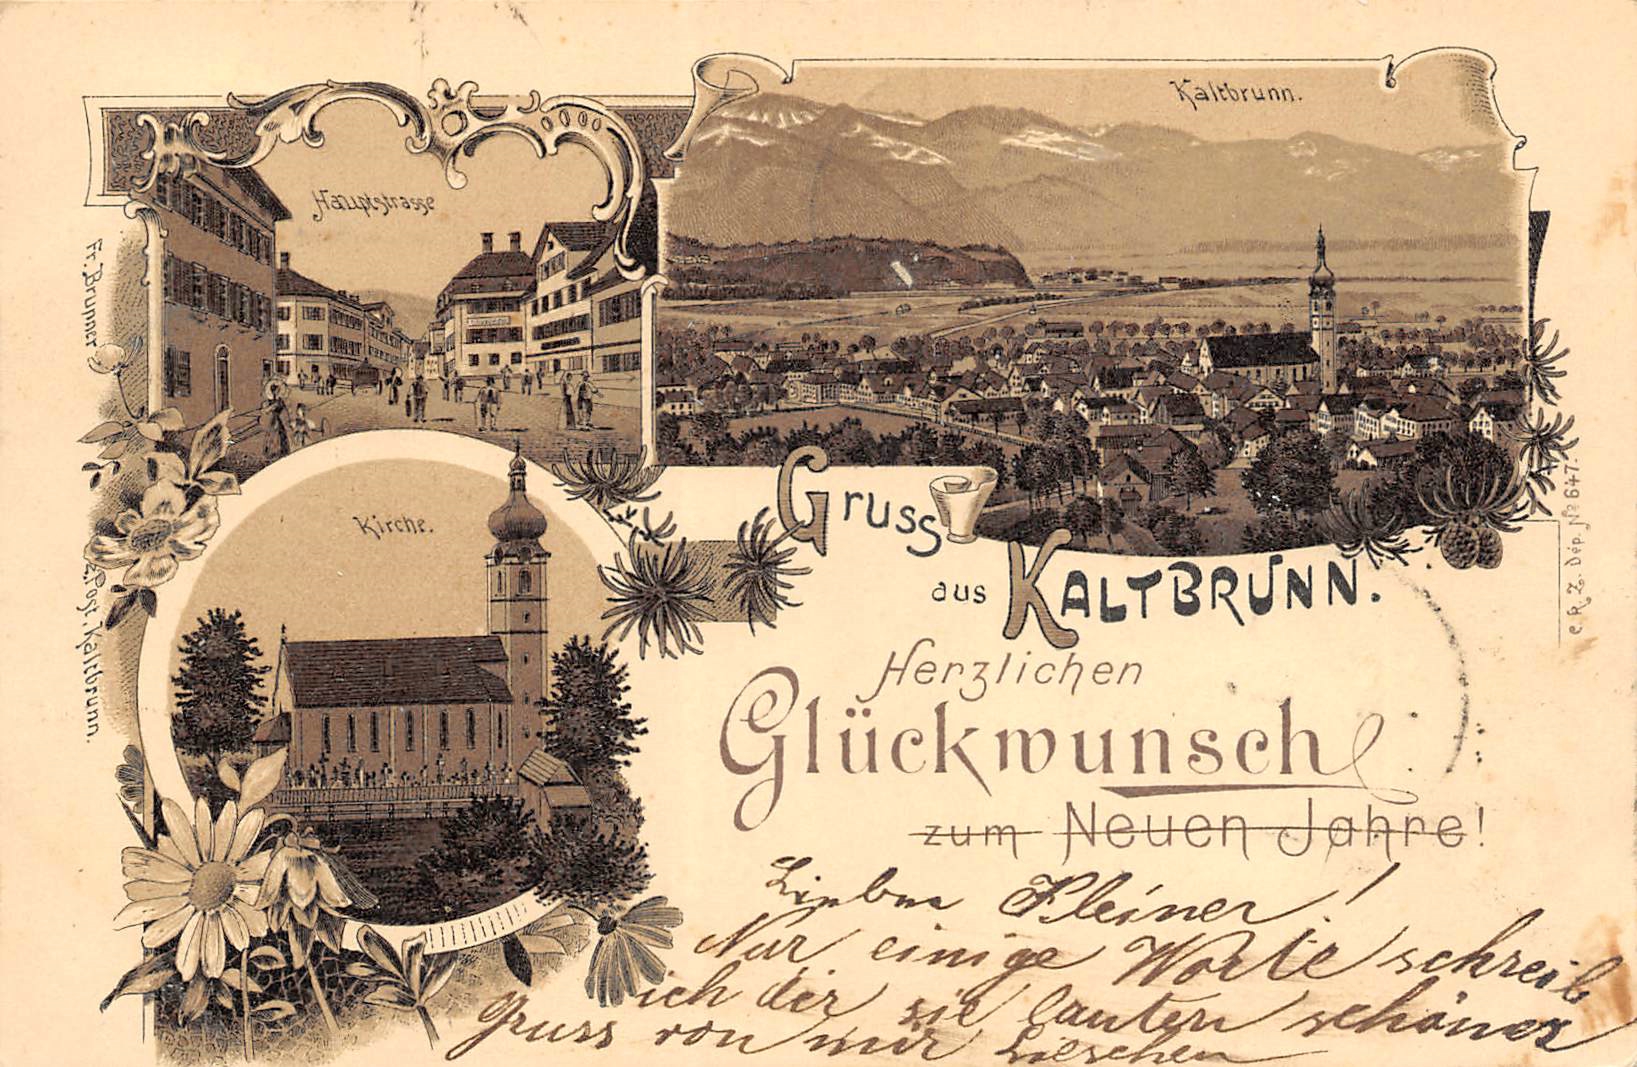 Kaltbrunn.
Hauptstrasse
Kirche.
Fr. Brunner
z. Post. Kaltbrunn.
Gruss
aus KALTBRUNN.
Herzlichen
Glückwunsch
zum Neuen Jahre!
Lieber Kleiner!
Nur einige Worte schreib
ich dir sie lauten schöner
Gruss von mir Lieschen
C. R. Z. Dép. No 647.